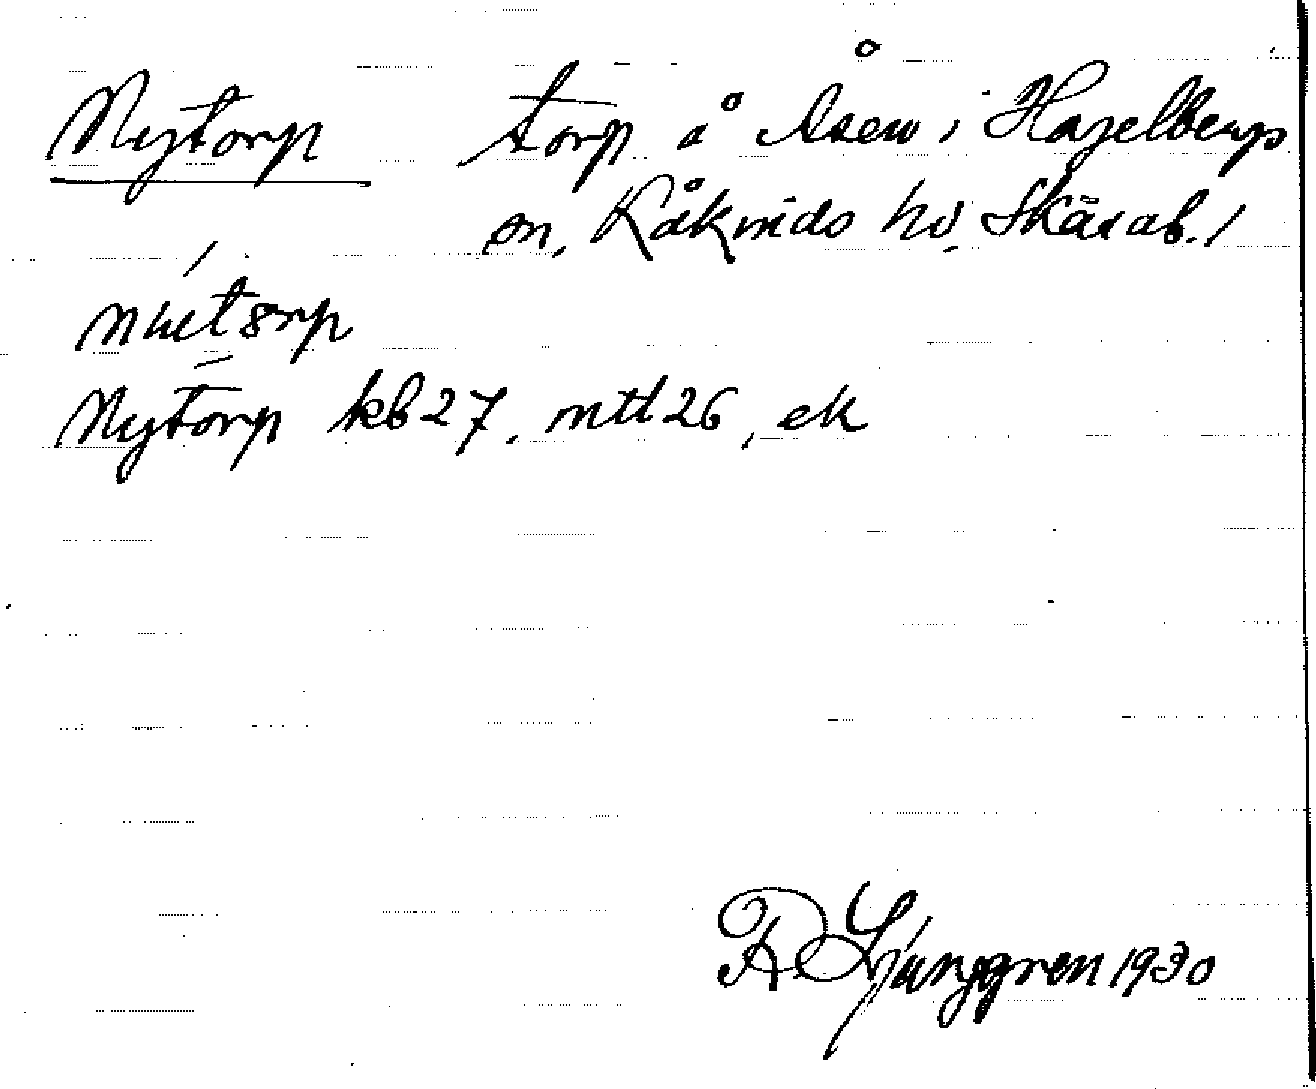 Nytorp torp å Åsen i Hazelbergs
sn, Råkvids hd, Skärab. l
nuetorp
Nytorp kb 27, mtl 26, ek
R Ljunggren 1930